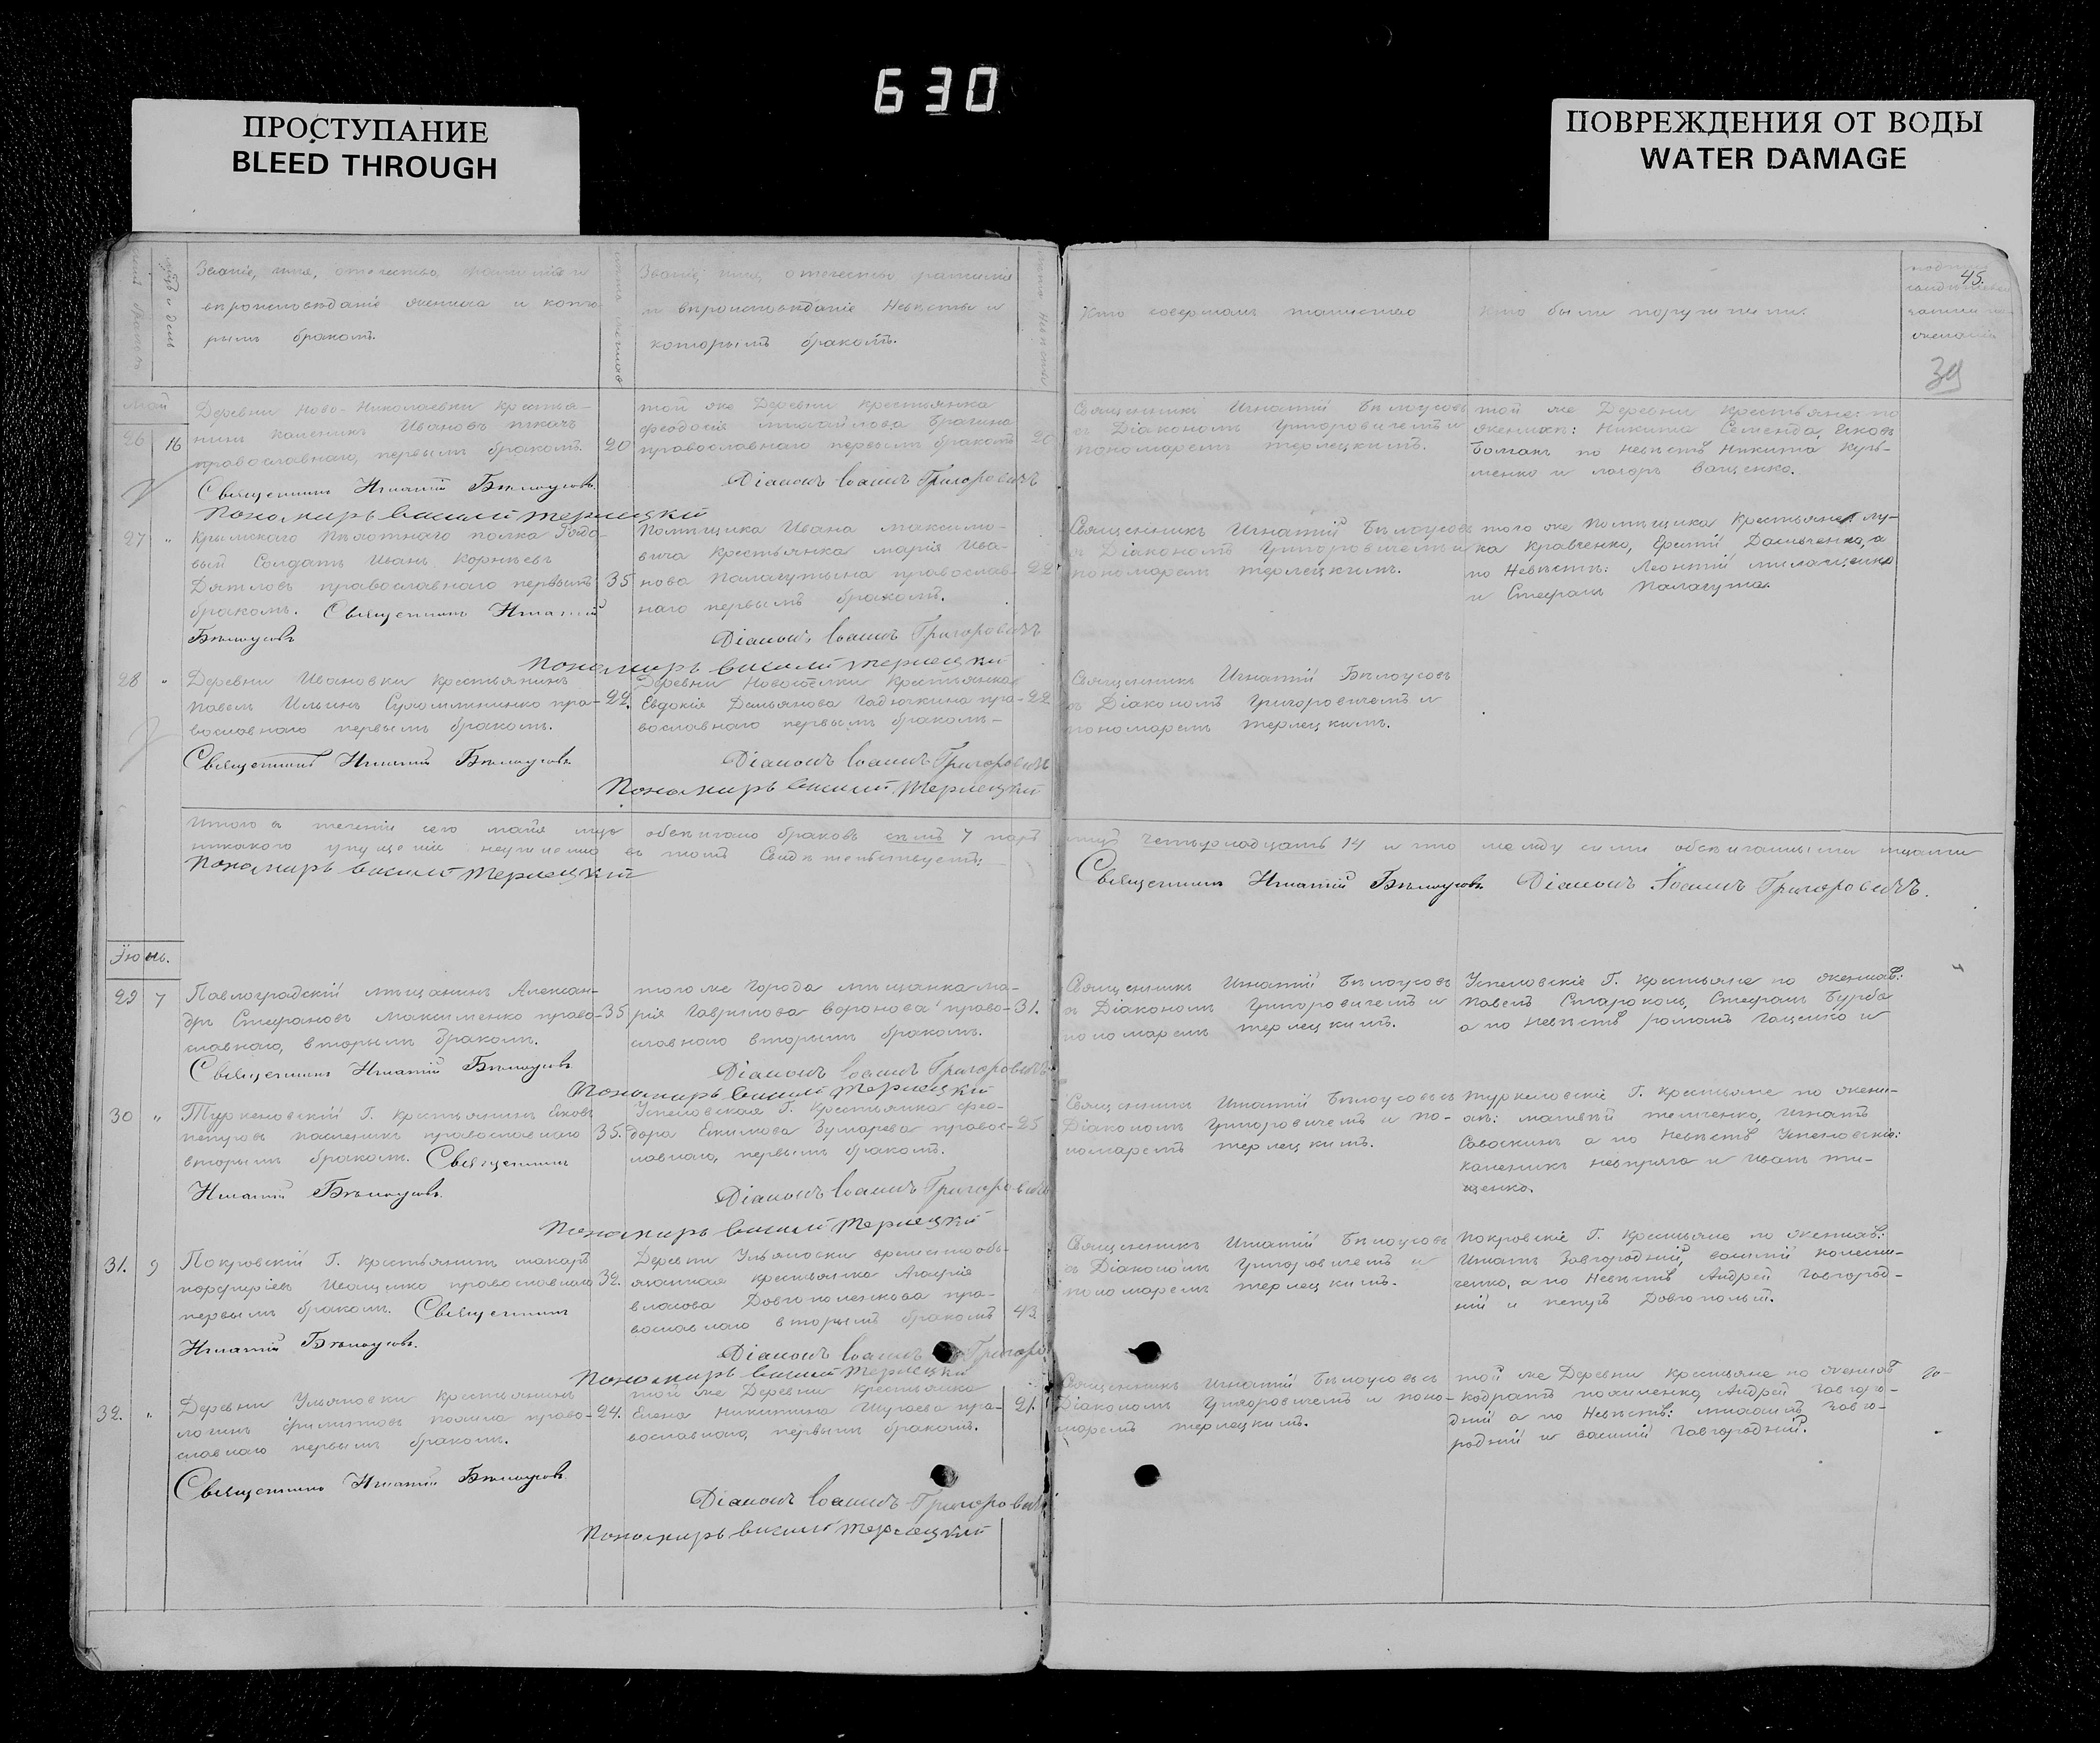 630
ПРОСТУПАНИЕ
BLEED THROUGH
ПОВРЕЖДЕНИЯ ОТ ВОДЫ
WATER DAMAGE
45.
39
Званіе, имя, отечество, фамилія и
вѣроисповѣданіе жениха и кото-
рымъ бракомъ.
Званіе, имя, отечество фамилія
и вѣроисповѣданіе Невѣсты и
которымъ бракомъ.
Кто совершалъ таинство
Кто были поручители.
Май
26 16
Деревни Ново-Николаевки крестья-
нинъ Каленикъ Ивановъ Ткачъ
православнаго, первымъ бракомъ. 20
Священникъ Игнатій Бѣлоусовъ
Пономарь Василій Терлецкій
той же Деревни крестьянка
Феодосія Михайлова Брагина
православнаго первымъ бракомъ 20
Діаконъ Іоаннъ Григоровичъ
Священникъ Игнатій Бѣлоусовъ
съ Діакономъ Григоровичемъ и
пономаремъ Терлецкимъ.
той же Деревни крестьяне по
женихѣ: Никита Семенда, Яковъ
Боманъ по Невѣстѣ Никита Кузь-
менко и Ващенко.
27 "
Крымскаго Пѣхотнаго полка Рядо-
вый Солдатъ Иванъ Корнѣевъ
Дятловъ православнаго первымъ 35
бракомъ. Священникъ Игнатій
Бѣлоусовъ
Помѣщика Ивана Максимо-
вича крестьянка Марія Ива-
нова Палагутина православ- 22
наго первымъ бракомъ.
Діаконъ Іоаннъ Григоровичъ
Пономарь Василій Терлецкій
Священникъ Игнатій Бѣлоусовъ
съ Діакономъ Григоровичемъ и
пономаремъ Терлецкимъ.
того же помѣщика Крестьяне Лу-
ка Кравченко, а
по Невѣстѣ: Леонтій
и Стефанъ Палагута.
28 "
Деревни Ивановки Крестьянинъ
Павелъ Ильинъ пра- 22.
вославнаго первымъ бракомъ.
Священникъ Игнатій Бѣлоусовъ
Деревни Новосёлки Крестьянка
Евдокія Демьянова Гадючкина пра- 22
вославнаго первымъ бракомъ-
Діаконъ Іоаннъ Григоровичъ
Пономарь Василій Терлецкій
Священникъ Игнатій Бѣлоусовъ
съ Діакономъ Григоровичемъ и
пономаремъ Терлецкимъ.
Итого въ теченіи сего мая мца обвѣнчано браковъ семь 7 паръ лицъ четырнадцать 14 и что между сими обвѣнчанными лицами
никакого упущенія неучинено въ томъ Свидѣтельствуетъ
Пономарь Василій Терлецкій
Священникъ Игнатій Бѣлоусовъ Діаконъ Іоаннъ Григоровичъ.
Іюнь.
29 7
Павлоградскій мѣщанинъ Алексан-
дръ Стефановъ Максименко право- 35
славнаго, вторымъ бракомъ.
Священникъ Игнатій Бѣлоусовъ
того же Города мѣщанка Ма-
рія Гаврилова Воронова право- 31.
славнаго вторымъ бракомъ.
Діаконъ Іоаннъ Григоровичъ
Пономарь Василій Терлецкій
Священникъ Игнатій Бѣлоусовъ
съ Діакономъ Григоровичемъ и
пономаремъ Терлецкимъ.
Успеновскіе Г. крестьяне по женихѣ:
Павелъ Стефанъ Бурба
а по Невѣстѣ Романъ Гащенко и
30 "
Туркеновскій Г. крестьянинъ Яковъ
православнаго 35.
вторымъ бракомъ. Священникъ
Игнатій Бѣлоусовъ.
Успеновская Г. Крестьянка Фео-
дора Екимова правос- 25
лавнаго, первымъ бракомъ.
Діаконъ Іоаннъ Григоровичъ
Пономарь Василій Терлецкій
Священникъ Игнатій Бѣлоусовъ съ
Діакономъ Григоровичемъ и по-
номаремъ Терлецкимъ.
Туркеновскіе Г. крестьяне по жени-
хѣ: Матвѣй Игнатъ
Савоскинъ а по Невѣстѣ Успеновскіе:
Каленикъ Непряга и Иванъ Ти-
щенко.
31. 9
Покровскій Г. Крестьянинъ Макаръ
Порфиріевъ Иващенко православнаго 32.
первымъ бракомъ. Священникъ
Игнатій Бѣлоусовъ.
Деревни Ульяновки временнообя-
занная крестьянка
Власова Довгополенкова пра-
вославнаго вторымъ бракомъ 43
Діаконъ Іоаннъ Григоро
Пономарь Василій Терлецкій
Священникъ Игнатій Бѣлоусовъ
съ Діакономъ Григоровичемъ и
пономаремъ Терлецкимъ.
Покровскіе Г. крестьяне по женихѣ:
Игнатъ Завгородній, Василій Колесни-
ченко, а по Невѣстѣ Андрей Завгород-
ній и Петръ Довгополый.
32. "
Деревни Ульяновки крестьянинъ
Логинъ Филиповъ право- 24.
славнаго первымъ бракомъ.
Священникъ Игнатій Бѣлоусовъ
той же Деревни Крестьянка
Елена Никитина пра- 21.
вославнаго, первымъ бракомъ.
Діаконъ Іоаннъ Григоровичъ
Пономарь Василій Терлецкій
Священникъ Игнатій Бѣлоусовъ съ
Діакономъ Григоровичемъ и поно-
маремъ Терлецкимъ.
той же Деревни Крестьяне по женихѣ
Кодратъ Андрей Завгоро-
дній а по Невѣстѣ: Михаилъ Завго-
родній и Василій Завгородній.